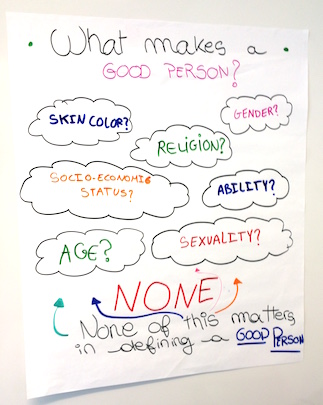 What makes a
GOOD PERSON?
SKIN COLOR?
GENDER?
RELIGION?
SOCIO-ECONOMIC
STATUS?
ABILITY?
AGE?
SEXUALITY?
NONE
None of this matters
in defining a GOOD PERSON